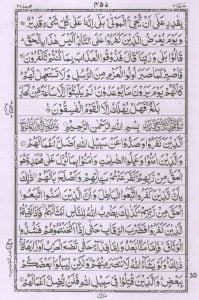 ۴۵۷
بِقٰدِرٍ عَلٰۤى اَنْ یُّحْیِۦَ الْمَوْتٰى ؕ بَلٰۤى اِنَّهٗ عَلٰى كُلِّ شَیْءٍ قَدِیْرٌ
وَ یَوْمَ یُعْرَضُ الَّذِیْنَ كَفَرُوْا عَلَى النَّارِ ؕ اَلَیْسَ هٰذَا بِالْحَقِّ ؕ
قَالُوْا بَلٰى وَ رَبِّنَا ؕ قَالَ فَذُوْقُوا الْعَذَابَ بِمَا كُنْتُمْ تَكْفُرُوْنَ
فَاصْبِرْ كَمَا صَبَرَ اُولُوا الْعَزْمِ مِنَ الرُّسُلِ وَ لَا تَسْتَعْجِلْ لَّهُمْ ؕ
كَاَنَّهُمْ یَوْمَ یَرَوْنَ مَا یُوْعَدُوْنَ ۙ لَمْ یَلْبَثُوْۤا اِلَّا سَاعَةً مِّنْ نَّهَارٍ ؕ
بَلٰغٌ ۚ فَهَلْ یُهْلَكُ اِلَّا الْقَوْمُ الْفٰسِقُوْنَ
بِسْمِ اللّٰهِ الرَّحْمٰنِ الرَّحِیْمِ
اَلَّذِیْنَ كَفَرُوْا وَ صَدُّوْا عَنْ سَبِیْلِ اللّٰهِ اَضَلَّ اَعْمَالَهُمْ
وَ الَّذِیْنَ اٰمَنُوْا وَ عَمِلُوا الصّٰلِحٰتِ وَ اٰمَنُوْا بِمَا نُزِّلَ عَلٰى
مُحَمَّدٍ وَّ هُوَ الْحَقُّ مِنْ رَّبِّهِمْ ۙ كَفَّرَ عَنْهُمْ سَیِّاٰتِهِمْ وَ اَصْلَحَ بَالَهُمْ
ذٰلِكَ بِاَنَّ الَّذِیْنَ كَفَرُوا اتَّبَعُوا الْبَاطِلَ وَ اَنَّ الَّذِیْنَ اٰمَنُوا اتَّبَعُوا
الْحَقَّ مِنْ رَّبِّهِمْ ؕ كَذٰلِكَ یَضْرِبُ اللّٰهُ لِلنَّاسِ اَمْثَالَهُمْ فَاِذَا لَقِیْتُمُ
الَّذِیْنَ كَفَرُوْا فَضَرْبَ الرِّقَابِ ؕ حَتّٰۤى اِذَاۤ اَثْخَنْتُمُوْهُمْ فَشُدُّوا
الْوَثَاقَ ۙ فَاِمَّا مَنًّۢا بَعْدُ وَ اِمَّا فِدَآءً حَتّٰى تَضَعَ الْحَرْبُ اَوْزَارَهَا
ذٰلِكَ ۛؕ وَ لَوْ یَشَآءُ اللّٰهُ لَانْتَصَرَ مِنْهُمْ وَ لٰكِنْ لِّیَبْلُوَا۠ بَعْضَكُمْ
بِبَعْضٍ ؕ وَ الَّذِیْنَ قُتِلُوْا فِیْ سَبِیْلِ اللّٰهِ فَلَنْ یُّضِلَّ اَعْمَالَهُمْ
30